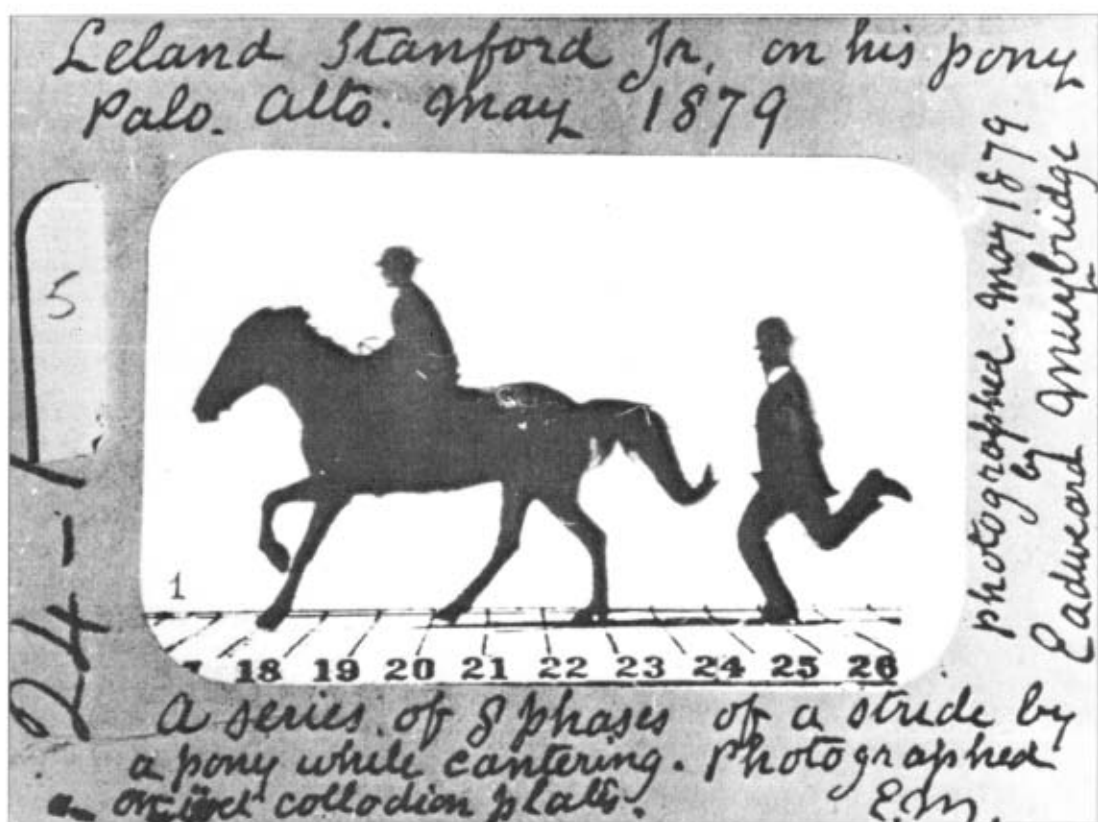 Leland Stanford Jr. on his pony
Palo. Alto. May 1879
photographed. May 1879
by
Eadweard Muybridge
5
24-1
1
18 19 20 21 22 23 24 25 26
A series of 8 phases of a stride by
a pony while cantering. Photographed
on wet collodion plates.
E.M.